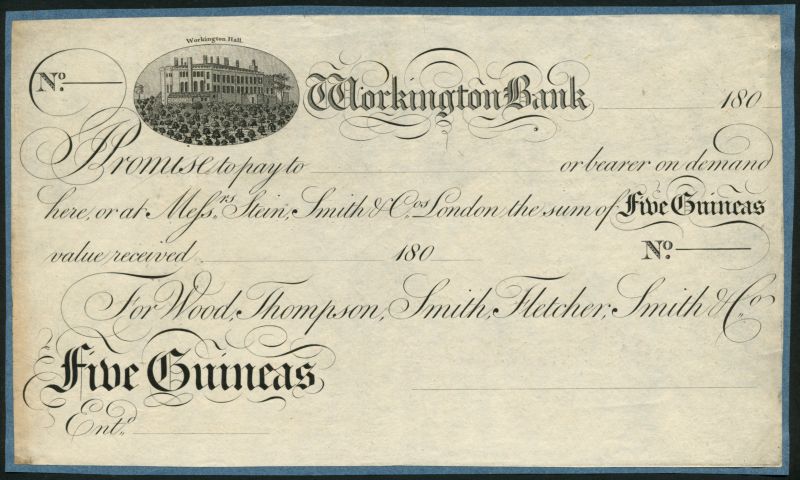 Workington Hall.
No.
Workington Bank 180
I Promise to pay to or bearer on demand
here, or at Messrs. Stein, Smith & Cos. London the sum of Five Guineas
value received 180 No.
For Wood, Thompson, Smith, Fletcher, Smith & Co.
Five Guineas
Entd.